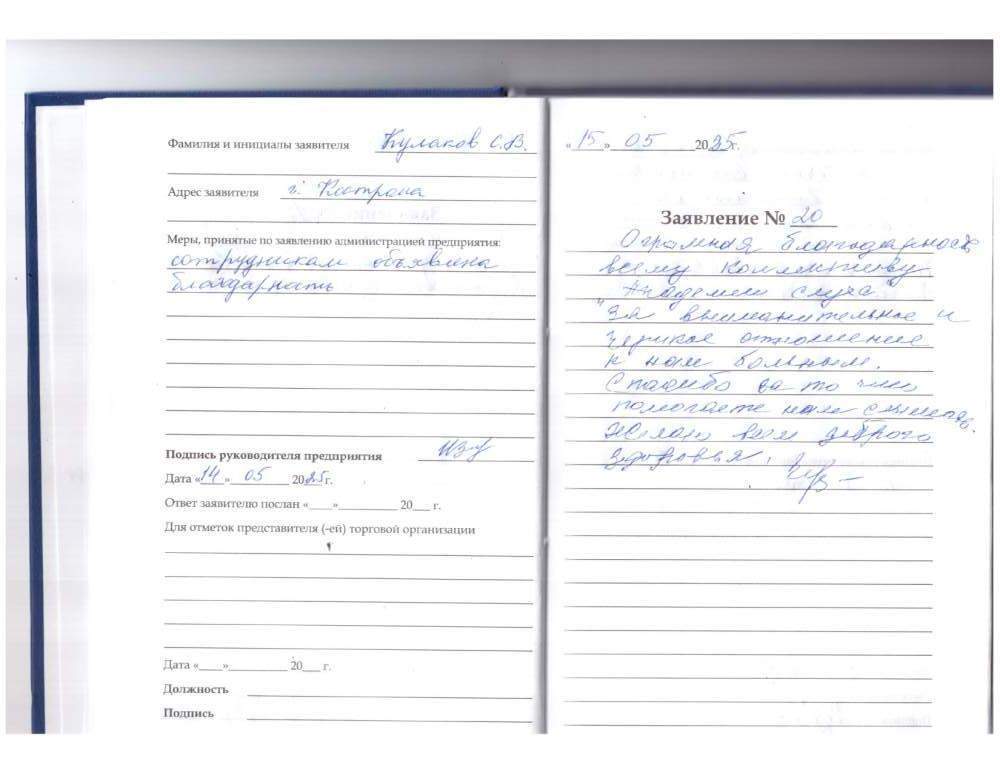 Фамилия и инициалы заявителя Кулаков С.В.
Адрес заявителя г. Кострома
Меры, принятые по заявлению администрацией предприятия:
сотрудникам объявлена
благодарность
Подпись руководителя предприятия
Дата «14» 05 2025г.
Ответ заявителю послан «___»__________ 20___ г.
Для отметок представителя (-ей) торговой организации
Дата «____»__________ 20___ г.
Должность
Подпись
«15» 05 2025г.
Заявление № 20
Огромная благодарность
всему коллективу
"Академии слуха"
За внимательное и
чуткое отношение
к нам больным.
Спасибо за то что
помогаете нам слышать.
Желаю всем доброго
здоровья.